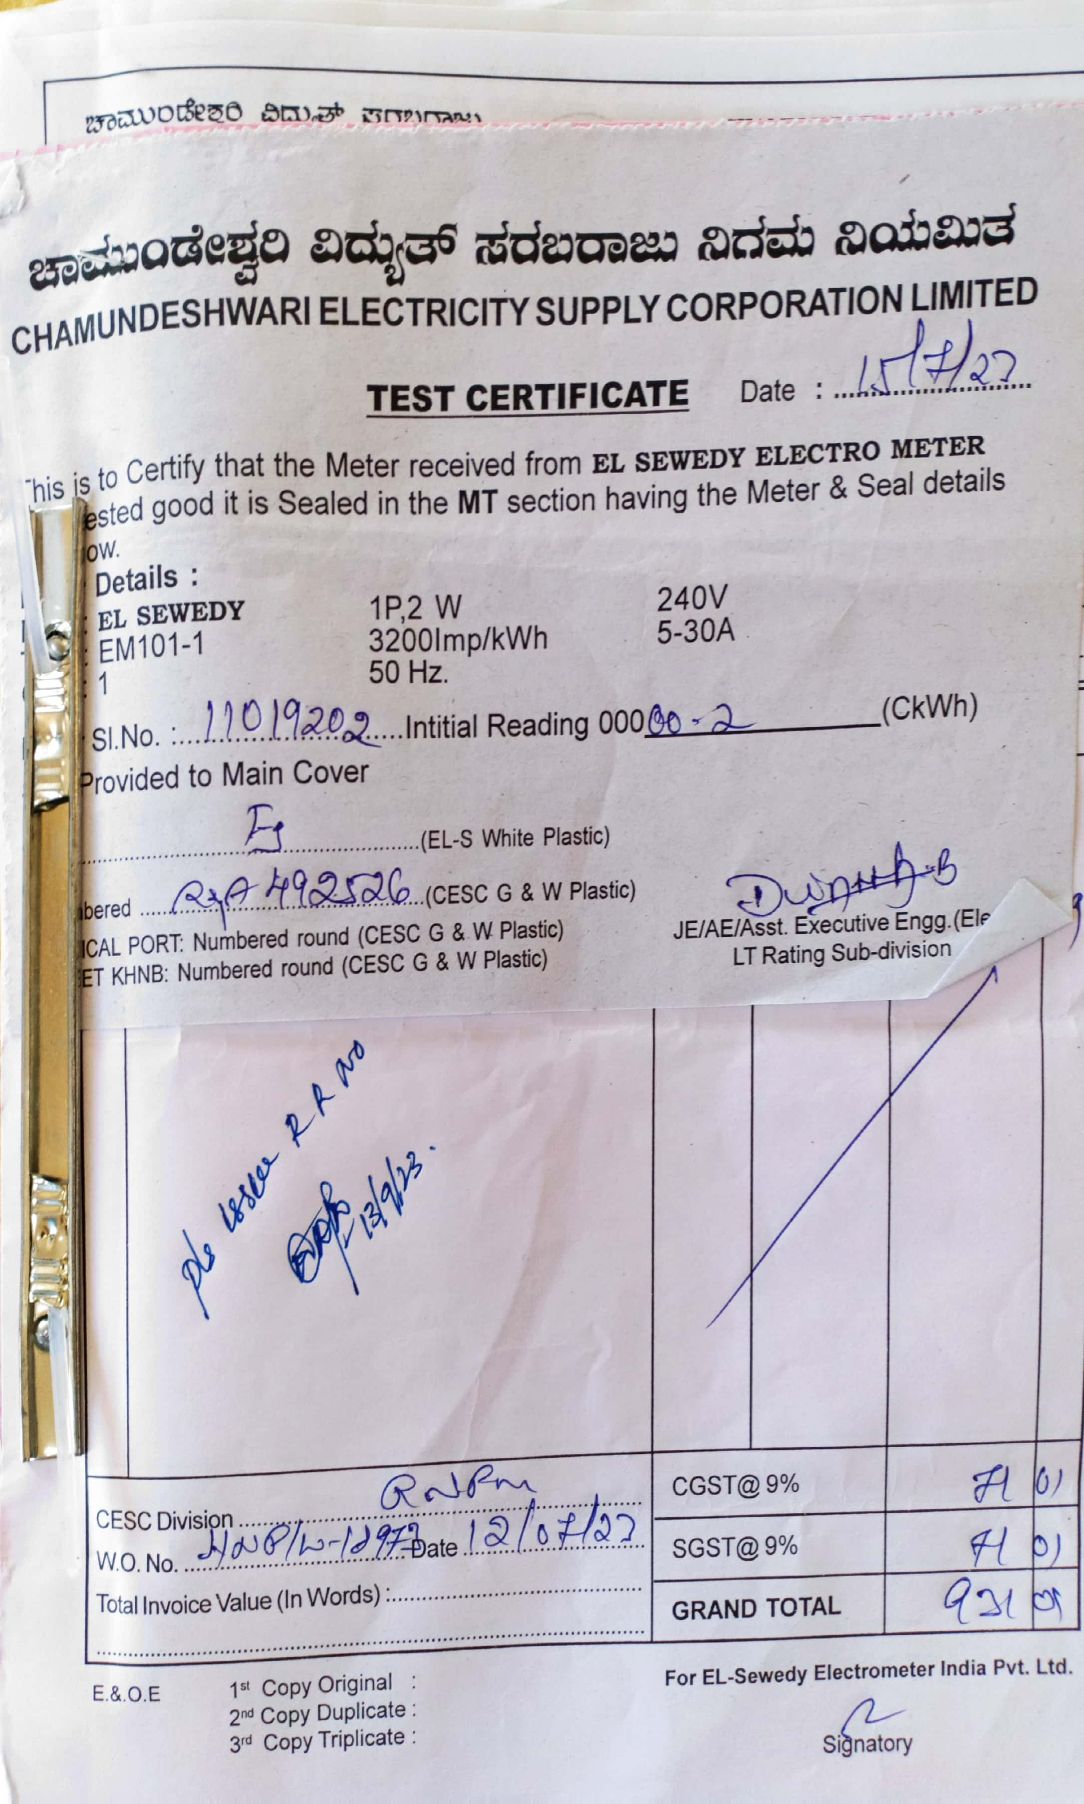 ಚಾಮುಂಡೇಶ್ವರಿ ವಿದ್ಯುತ್ ಸರಬರಾಜು
ಚಾಮುಂಡೇಶ್ವರಿ ವಿದ್ಯುತ್ ಸರಬರಾಜು ನಿಗಮ ನಿಯಮಿತ
CHAMUNDESHWARI ELECTRICITY SUPPLY CORPORATION LIMITED
TEST CERTIFICATE Date : 15/7/23
This is to Certify that the Meter received from EL SEWEDY ELECTRO METER
ested good it is Sealed in the MT section having the Meter & Seal details
ow.
Details :
: EL SEWEDY 1P,2 W 240V
: EM101-1 3200Imp/kWh 5-30A
: 1 50 Hz.
Sl.No. : 11019202 Intitial Reading 00000-2 (CkWh)
Provided to Main Cover
(EL-S White Plastic)
bered 492526 (CESC G & W Plastic)
ICAL PORT: Numbered round (CESC G & W Plastic)
ET KHNB: Numbered round (CESC G & W Plastic)
JE/AE/Asst. Executive Engg.(Ele
LT Rating Sub-division
pls issue R R No
13/9/23.
CESC Division
W.O. No. Date 12/07/23
Total Invoice Value (In Words) :
CGST@ 9% 71 01
SGST@ 9% 71 01
GRAND TOTAL 931 01
E.&.O.E
1st Copy Original :
2nd Copy Duplicate :
3rd Copy Triplicate :
For EL-Sewedy Electrometer India Pvt. Ltd.
Signatory